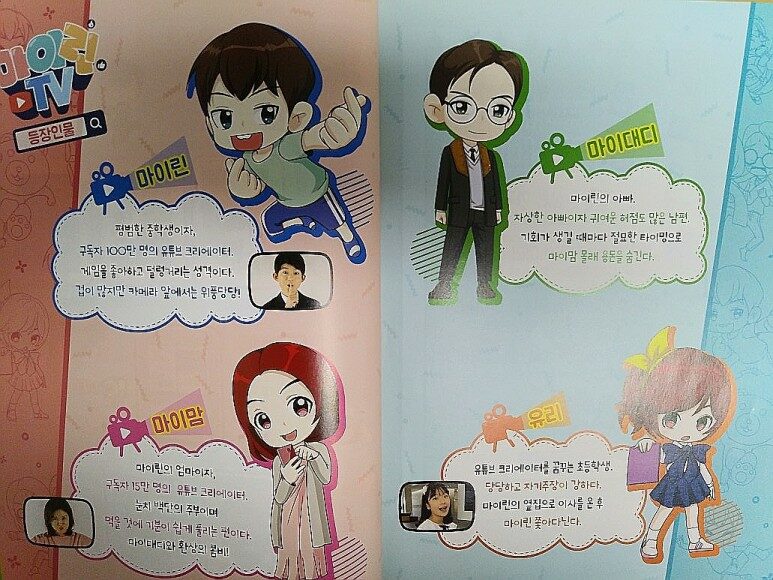 마이린
TV
등장인물
마이린
평범한 중학생이자,
구독자 100만 명의 유튜브 크리에이터.
게임을 좋아하고 덜렁거리는 성격이다.
겁이 많지만 카메라 앞에서는 위풍당당!
마이맘
마이린의 엄마이자,
구독자 15만 명의 유튜브 크리에이터.
눈치 백단의 주부이며
먹을 것에 기분이 쉽게 풀리는 편이다.
마이대디와 환상의 콤비!
마이대디
마이린의 아빠.
자상한 아빠이자 귀여운 허점도 많은 남편.
기회가 생길 때마다 절묘한 타이밍으로
마이맘 몰래 용돈을 숨긴다.
유리
유튜브 크리에이터를 꿈꾸는 초등학생.
당당하고 자기주장이 강하다.
마이린의 옆집으로 이사를 온 후
마이린 쫓아다닌다.